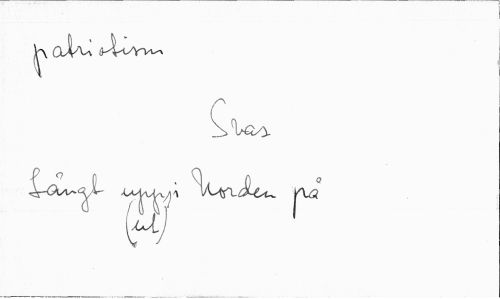 patriotism
Svas
Långt uppi Norden på
(ut)